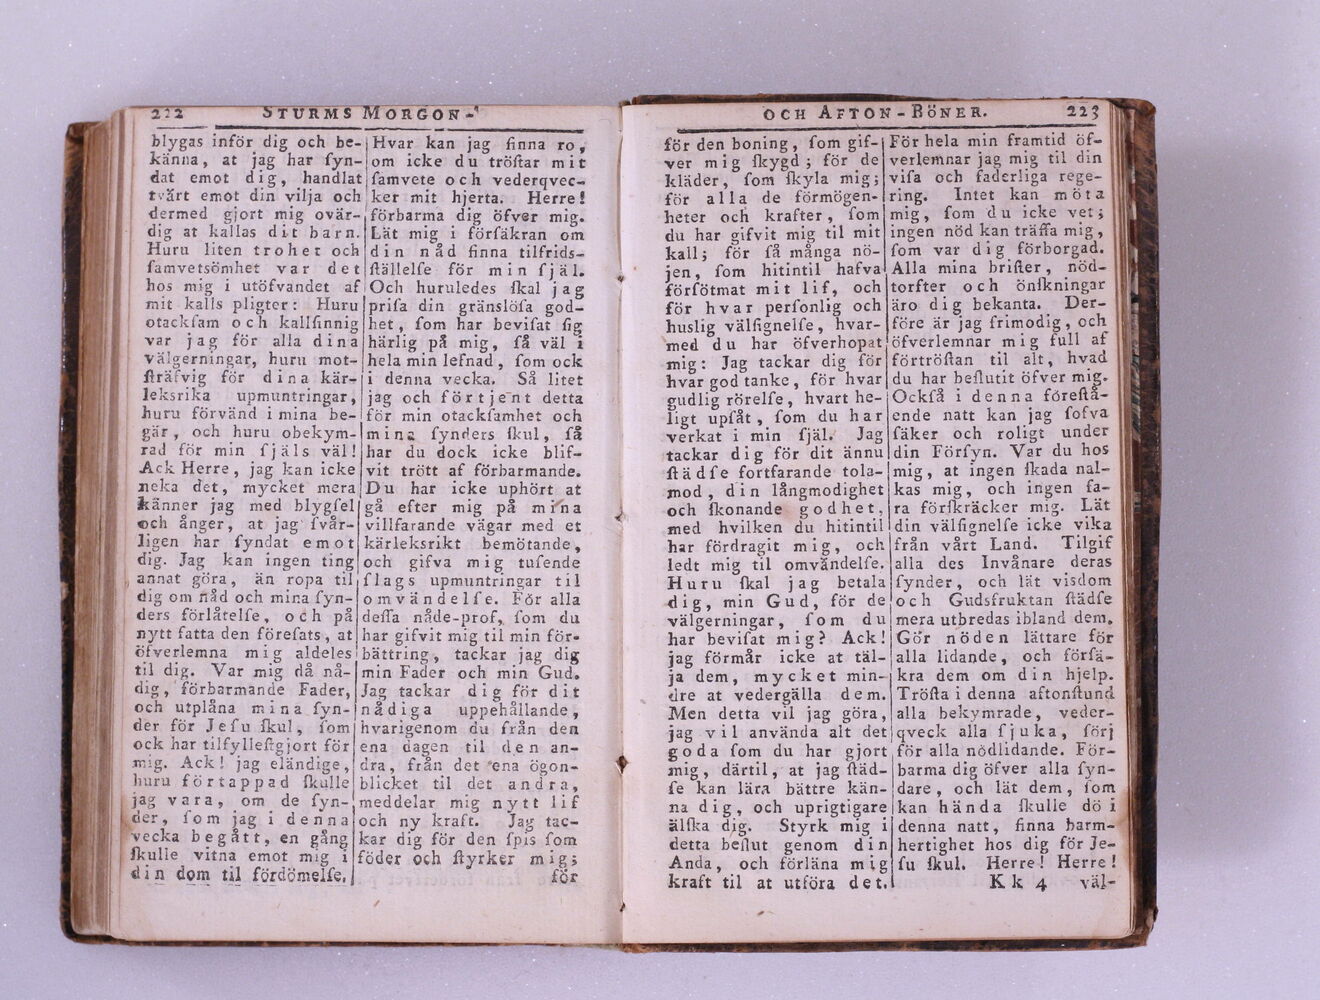 222 STURMS MORGON-
blygas inför dig och be-
känna, at jag har ſyn-
dat emot dig, handlat
tvärt emot din vilja och
dermed gjort mig ovär-
dig at kallas dit barn.
Huru liten trohet och
ſamvetsömhet var det
hos mig i utöfvandet af
mit kalls pligter: Huru
otackſam och kallſinnig
var jag för alla dina
välgerningar, huru mot-
ſträfvig för dina kär-
leksrika upmuntringar,
huru förvänd i mina be-
gär, och huru obekym-
rad för min ſjäls väl!
Ack Herre, jag kan icke
neka det, mycket mera
känner jag med blygſel
och ånger, at jag ſvår-
ligen har ſyndat emot
dig. Jag kan ingen ting
annat göra, än ropa til
dig om nåd och mina ſyn-
ders förlåtelſe, och på
nytt fatta den föreſats, at
öfverlemna mig aldeles
til dig. Var mig då nå-
dig, förbarmande Fader,
och utplåna mina ſyn-
der för Jeſu ſkul, ſom
ock har tilfylleſtgjort för
mig. Ack! jag eländige,
huru förtappad ſkulle
jag vara, om de ſyn-
der, ſom jag i denna
vecka begått, en gång
ſkulle vitna emot mig i
din dom til fördömelſe.
Hvar kan jag finna ro,
om icke du tröſtar mit
ſamvete och vederqvec-
ker mit hjerta. Herre!
förbarma dig öfver mig.
Lät mig i förſäkran om
din nåd finna tilfrids-
ſtällelſe för min ſjäl.
Och huruledes ſkal jag
priſa din gränslöſa god-
het, ſom har beviſat ſig
härlig på mig, ſå väl i
hela min lefnad, ſom ock
i denna vecka. Så litet
jag och förtjent detta
för min otackſamhet och
mina ſynders ſkul, ſå
har du dock icke blif-
vit trött af förbarmande.
Du har icke uphört at
gå efter mig på mina
villfarande vägar med et
kärleksrikt bemötande,
och gifva mig tuſende
ſlags upmuntringar til
omvändelſe. För alla
deſſa nåde-prof, ſom du
har gifvit mig til min för-
bättring, tackar jag dig
min Fader och min Gud.
Jag tackar dig för dit
nådiga uppehållande,
hvarigenom du från den
ena dagen til den an-
dra, från det ena ögon-
blicket til det andra,
meddelar mig nytt lif
och ny kraft. Jag tac-
kar dig för den ſpis ſom
föder och ſtyrker mig;
för
OCH AFTON-BÖNER. 223
för den boning, ſom gif-
ver mig ſkygd; för de
kläder, ſom ſkyla mig;
för alla de förmögen-
heter och krafter, ſom
du har gifvit mig til mit
kall; för ſå många nö-
jen, ſom hitintil hafva
förſötmat mit lif, och
för hvar perſonlig och
huslig välſignelſe, hvar-
med du har öfverhopat
mig: Jag tackar dig för
hvar god tanke, för hvar
gudlig rörelſe, hvart he-
ligt upſåt, ſom du har
verkat i min ſjäl. Jag
tackar dig för dit ännu
ſtädſe fortfarande tola-
mod, din långmodighet
och ſkonande godhet,
med hvilken du hitintil
har fördragit mig, och
ledt mig til omvändelſe.
Huru ſkal jag betala
dig, min Gud, för de
välgerningar, ſom du
har beviſat mig? Ack!
jag förmår icke at täl-
ja dem, mycket min-
dre at vedergälla dem.
Men detta vil jag göra,
jag vil använda alt det
goda ſom du har gjort
mig, därtil, at jag ſtäd-
ſe kan lära bättre kän-
na dig, och uprigtigare
älſka dig. Styrk mig i
detta beſlut genom din
Anda, och förläna mig
kraft til at utföra det.
För hela min framtid öf-
verlemnar jag mig til din
viſa och faderliga rege-
ring. Intet kan möta
mig, ſom du icke vet;
ingen nöd kan träffa mig,
ſom var dig förborgad.
Alla mina briſter, nöd-
torfter och önſkningar
äro dig bekanta. Der-
före är jag frimodig, och
öfverlemnar mig full af
förtröſtan til alt, hvad
du har beſlutit öfver mig.
Ockſå i denna föreſtå-
ende natt kan jag ſofva
ſäker och roligt under
din Förſyn. Var du hos
mig, at ingen ſkada nal-
kas mig, och ingen fa-
ra förſkräcker mig. Lät
din välſignelſe icke vika
från vårt Land. Tilgif
alla des Invånare deras
ſynder, och lät visdom
och Gudsfruktan ſtädſe
mera utbredas ibland dem.
Gör nöden lättare för
alla lidande, och förſä-
kra dem om din hjelp.
Tröſta i denna aftonſtund
alla bekymrade, veder-
qveck alla ſjuka, ſörj
för alla nödlidande. För-
barma dig öfver alla ſyn-
dare, och lät dem, ſom
kan hända ſkulle dö i
denna natt, finna barm-
hertighet hos dig för Je-
ſu ſkul. Herre! Herre!
Kk 4 väl-